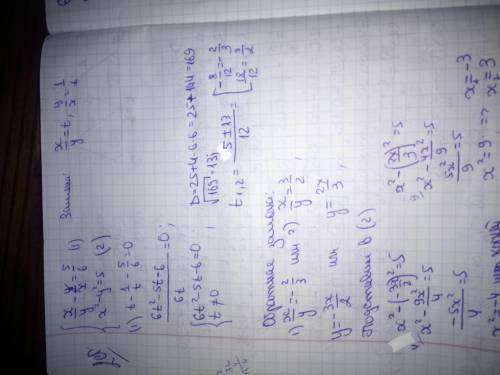 { x/y - y/x = 5/6 (1)
{ x² - y² = 5 (2)
Замена: x/y = t, y/x = 1/t
(1) t - 1/t - 5/6 = 0
(6t² - 5t - 6)/6t = 0;
{ 6t² - 5t - 6 = 0
{ t ≠ 0
D = 25 + 4·6·6 = 25 + 144 = 169
√169 = 13;
t₁,₂ = (5 ± 13)/12 = [ -8/12 = -2/3
[ 18/12 = 3/2
Обратная замена:
1) x/y = -2/3 или 2) x/y = 3/2;
y = -3x/2 или y = 2x/3;
Подставим в (2)
x² - (-3x/2)² = 5
x² - 9x²/4 = 5
-5x²/4 = 5
x² - (2x/3)² = 5
x² - 4x²/9 = 5
5x²/9 = 5
x² = 9 => x = -3
x = 3